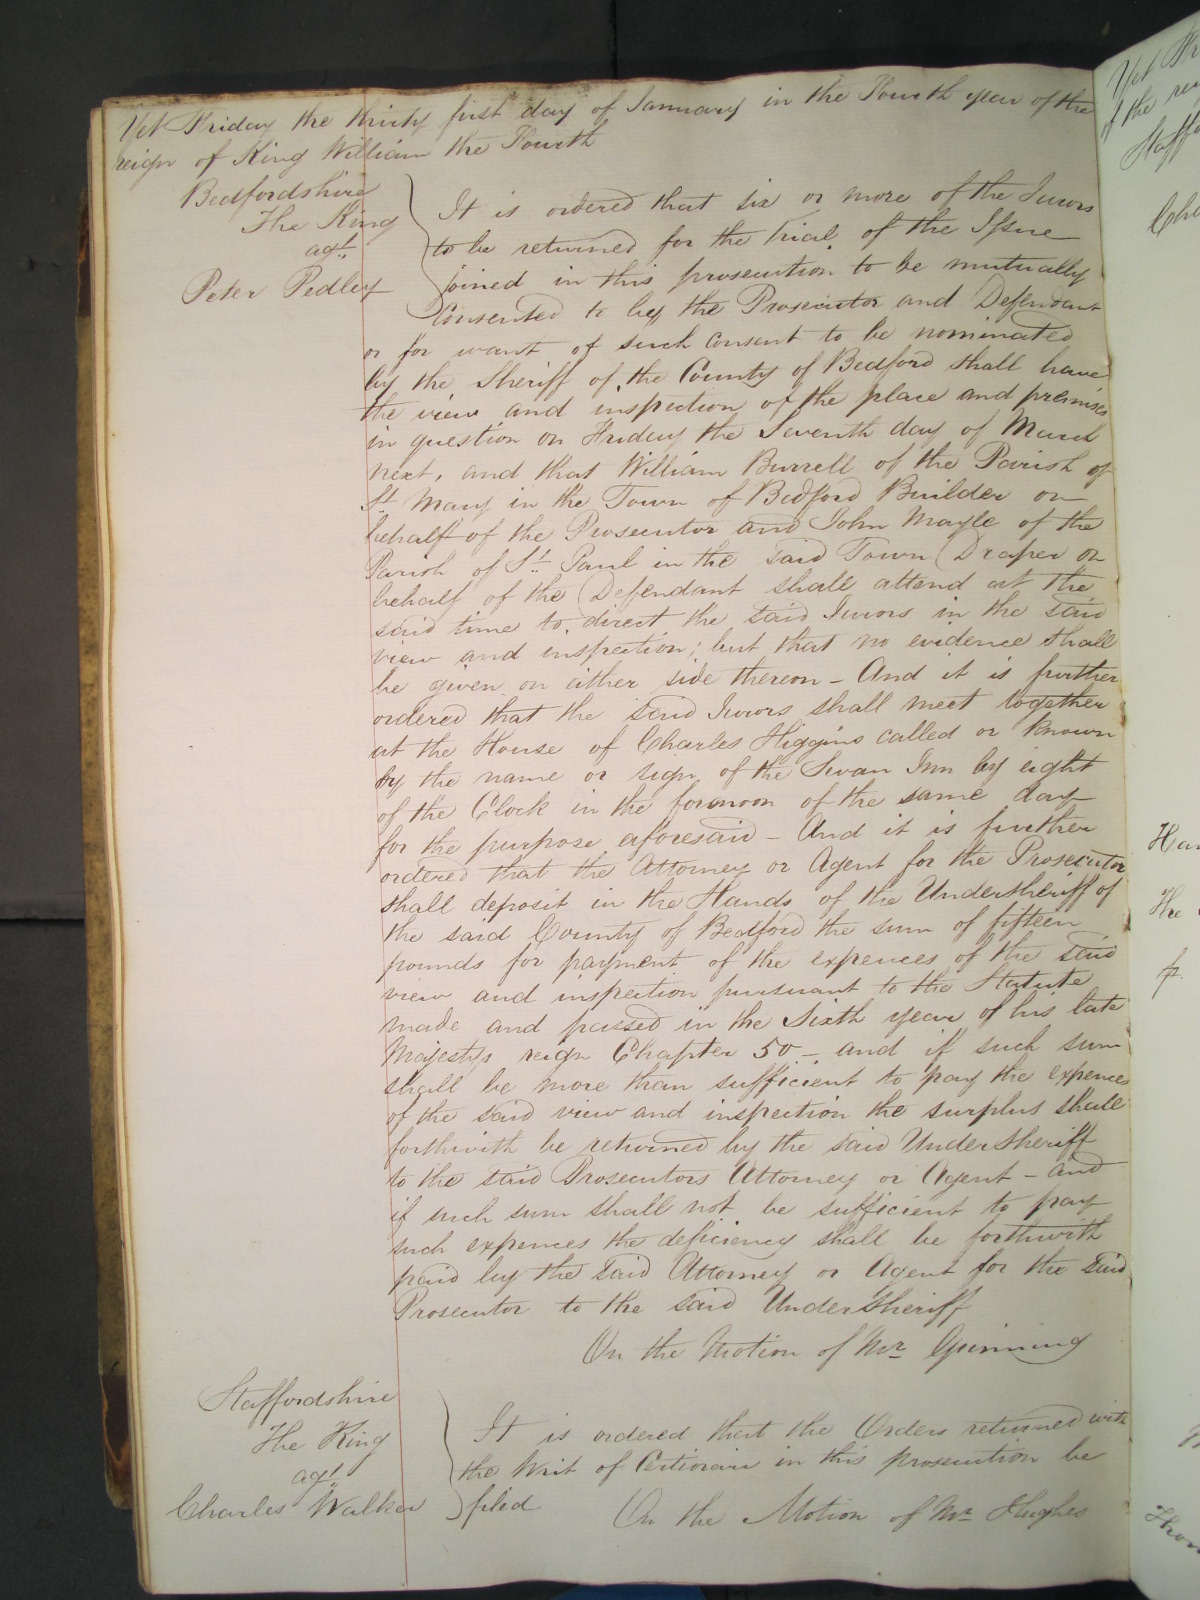 Yet Friday the thirty first day of January in the Fourth year of the
reign of King William the Fourth
Bedfordshire
The King
agt.
Peter Pedley
It is ordered that six or more of the Jurors
to be returned for the trial of the Issue
joined in this prosecution to be mutually
consented to by the Prosecutor and Defendant
or for want of such consent to be nominated
by the Sheriff of the County of Bedford shall have
the view and inspection of the place and premises
in question on Friday the Seventh day of March
next, and that William Burrell of the Parish of
St. Mary in the Town of Bedford Builder on
behalf of the Prosecutor and John Mayle of the
Parish of St. Paul in the said Town Draper on
behalf of the Defendant shall attend at the
said time to direct the said Jurors in the said
view and inspection; but that no evidence shall
be given on either side thereon - And it is further
ordered that the said Jurors shall meet together
at the House of Charles Higgins called or known
by the name or sign of the Swan Inn by eight
of the Clock in the forenoon of the same day
for the purpose aforesaid - And it is further
ordered that the Attorney or Agent for the Prosecutor
shall deposit in the Hands of the Undersheriff of
the said County of Bedford the sum of fifteen
pounds for payment of the expences of the said
view and inspection pursuant to the Statute
made and passed in the Sixth year of his late
Majestys reign Chapter 50 - and if such sum
shall be more than sufficient to pay the expences
of the said view and inspection the surplus shall
forthwith be returned by the said UnderSheriff
to the said Prosecutors Attorney or Agent - and
if such sum shall not be sufficient to pay
such expences the deficiency shall be forthwith
paid by the said Attorney or Agent for the said
Prosecutor to the said UnderSheriff
On the Motion of Mr. Gunning
Staffordshire
The King
agt.
Charles Walker
It is ordered that the Orders returned with
the Writ of Certiorari in this prosecution be
filed
On the Motion of Mr. Hughes